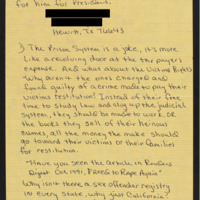 for him for President.
Hewitt, TX 76643
3) The Prison System is a joke, it's more
like a revolving door at the tax payers
expense. And what about the Victims Rights
Why aren't the ones charged and
found guilty of a crime made to pay their
victims restitution? Instead of their free
time to study law and clog up the judicial
system, they should be made to work, or
the books they sell of their heinous
crimes, all the money the make should
go toward their victims or their families
for restitution.
"Have you seen the article in Readers
Digest Oct. 1991, "Freed to Rape Again"
Why isn't there a sex offender registry
in every state, why just California?